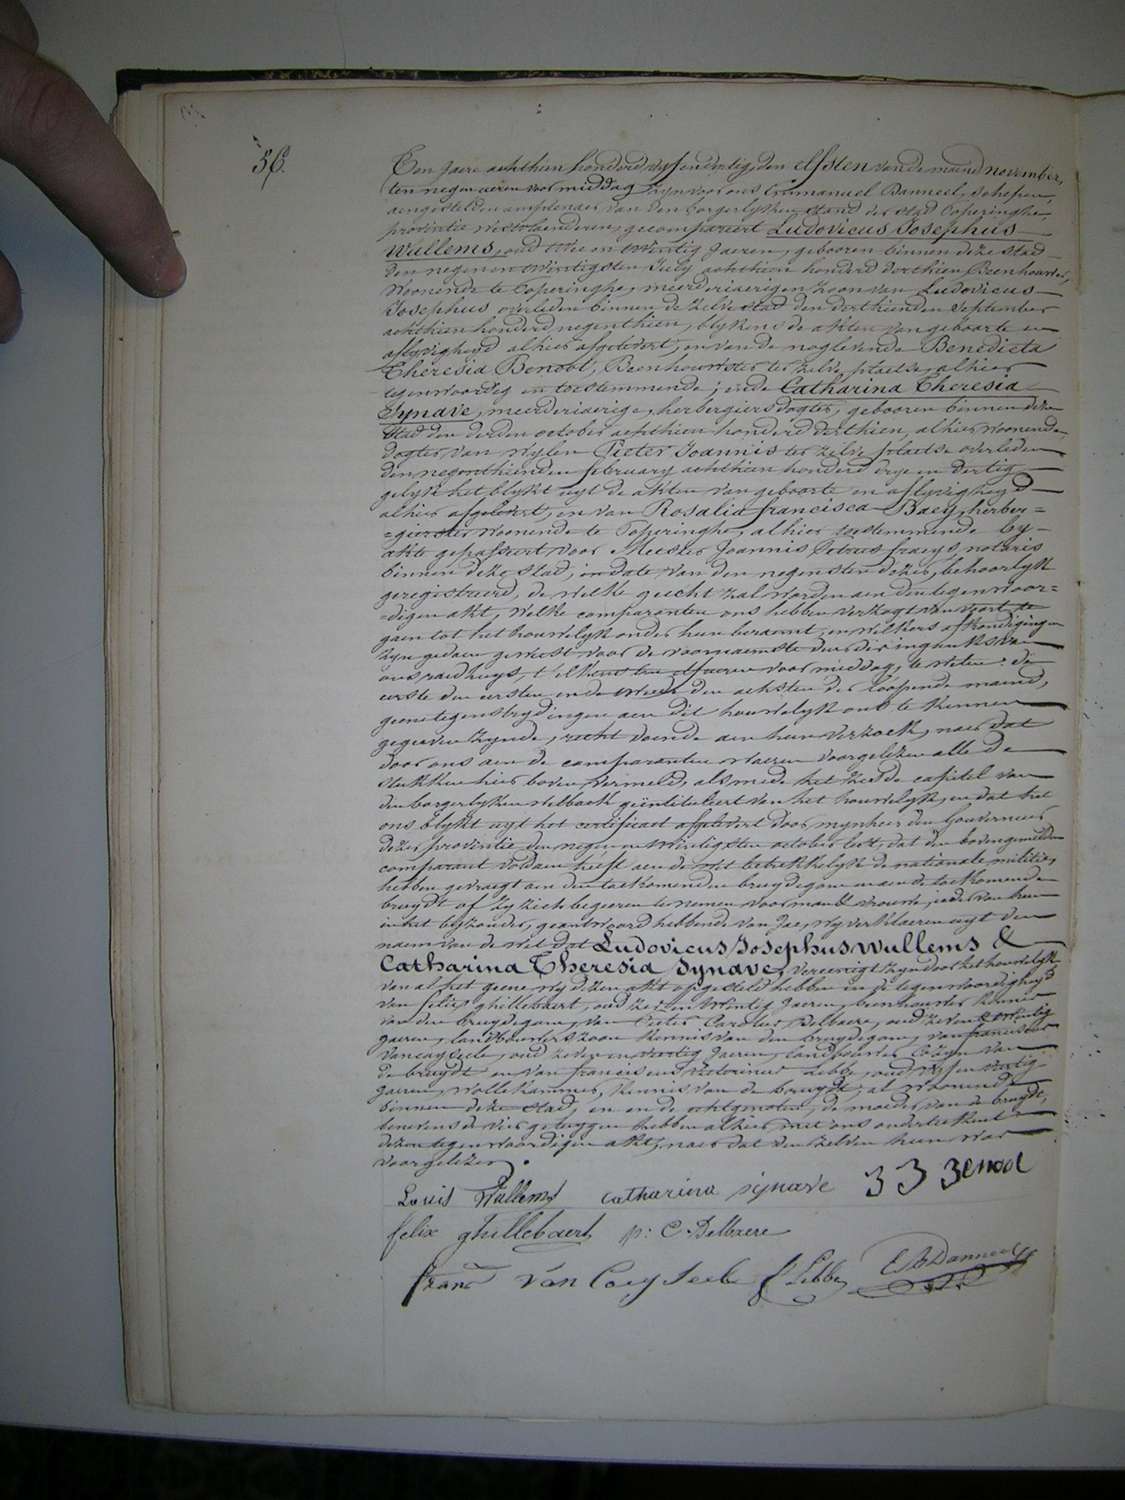 36.
Ten Jaere achthien honderd vyf en dertig, den elfsten van de maend november,
ten negen ueren voormiddag, zyn voor ons Emmanuel Danneel, schepen,
aengestelden amptenaer van den borgerlyken stand der stad Poperinghe,
provintie Westvlaenderen, gecompareert Ludovicus Josephus
Wullems, oud twee en twintig Jaeren, gebooren binnen deze stad
den negen en twintigsten July achthien honderd derthien, Beenhouwer,
woonende te Poperinghe, meerderjaerigen zoon van Ludovicus
Josephus overleden binnen de zelve stad den derthienden September
achthien honderd negenthien, blykens de akten van geboorte en
aflyvigheyd alhier afgelevert, en van de noglevende Benedicta
Theresia Benoot, Beenhouwster ter zelve plaetse, alhier
tegenwoordig en toestemmende; ende Catharina Theresia
Synave, meerderjaerige, herbergiers dogter, gebooren binnen deze
stad den derden october achthien honderd derthien, alhier woonende,
dogter van wylen Pieter Joannis ter zelve plaetse overleden
den negenthienden february achthien honderd drye en dertig
gelyk het blykt uyt de akten van geboorte en aflyvigheyd
alhier afgelevert, en van Rosalia francisca Baey, herber=
=gierster woonende te Poperinghe, alhier toestemmende by
akte gepasseert voor Meester Joannis Petrus fraeys notaris
binnen deze stad, in date van den negensten dezer, behoorlyk
geregistreerd, de welke gehecht zal worden aen den tegenwoor=
=digen akt, welke comparanten ons hebben verzogt van voort te
gaen tot het houwelyk onder hun beraemt, en welkers afkondigingen
zyn gedaen geweest voor de voornaemste deur der ingank van
ons raedhuys, t'elkens ten elf ueren voormiddag, te weten: de
eerste den eersten ende tweede den achsten der loopende maend,
geene tegenstrydingen aen dit houwelyk ons te kennen
gegeven zynde, recht doende aen hun verzoek, naer dat
door ons aen de comparanten waeren voorgelezen alle de
stukken hier boven vermeld, als mede het zesde capitel van
den borgerlyken wetboek geïntituleert van het houwelyk, en dat het
ons blykt uyt het certificaet afgelevert door mynheer den Gouverneur
dezer provintie, den negen en twintigsten october lest, dat den bovengemelden
comparant voldaen heeft aen de wet betrekkelyk de nationale militie,
hebben gevraegt aen den toekomenden bruydegom en aen de toekomende
bruydt of zy zich begeeren te nemen voor man & vrouw, ieder van hun
in het byzonder, geantwoord hebbende van Jae, wy verklaeren uyt den
naem van de wet dat Ludovicus Josephus Wullems &
Catharina Theresia Synave, vereenigt zyn door het houwelyk
van al het geene wy dezen akt opgesteld hebben in de tegenwoordigheyd
van felix ghillebaert, oud zes en twintig Jaeren, beenhouwer kennis
van den bruydegom, van Pieter Carolus Delbaere, oud zeven & twintig
Jaeren, landbouwers zoon kennis van den bruydegom, van franciscus
Vancayseele, oud zeven en veertig Jaeren, landbouwer Cozyn van
de bruydt en van franciscus Victorinus Lebbe, oud vyf en veertig
Jaeren, wollekammer, kennis van de bruydt, al woonende
binnen deze stad, en en de echtgenoten, de moeder van de bruydt,
benevens de vier getuygen hebben alhier met ons onderteekent
dezen tegenwoordigen akt, naer dat den zelven hun was
voorgelezen.
Louis Wullems catharina synave
felix ghillebaert p: C Delbaere
franc van Cayseele f Lebbe E Danneel